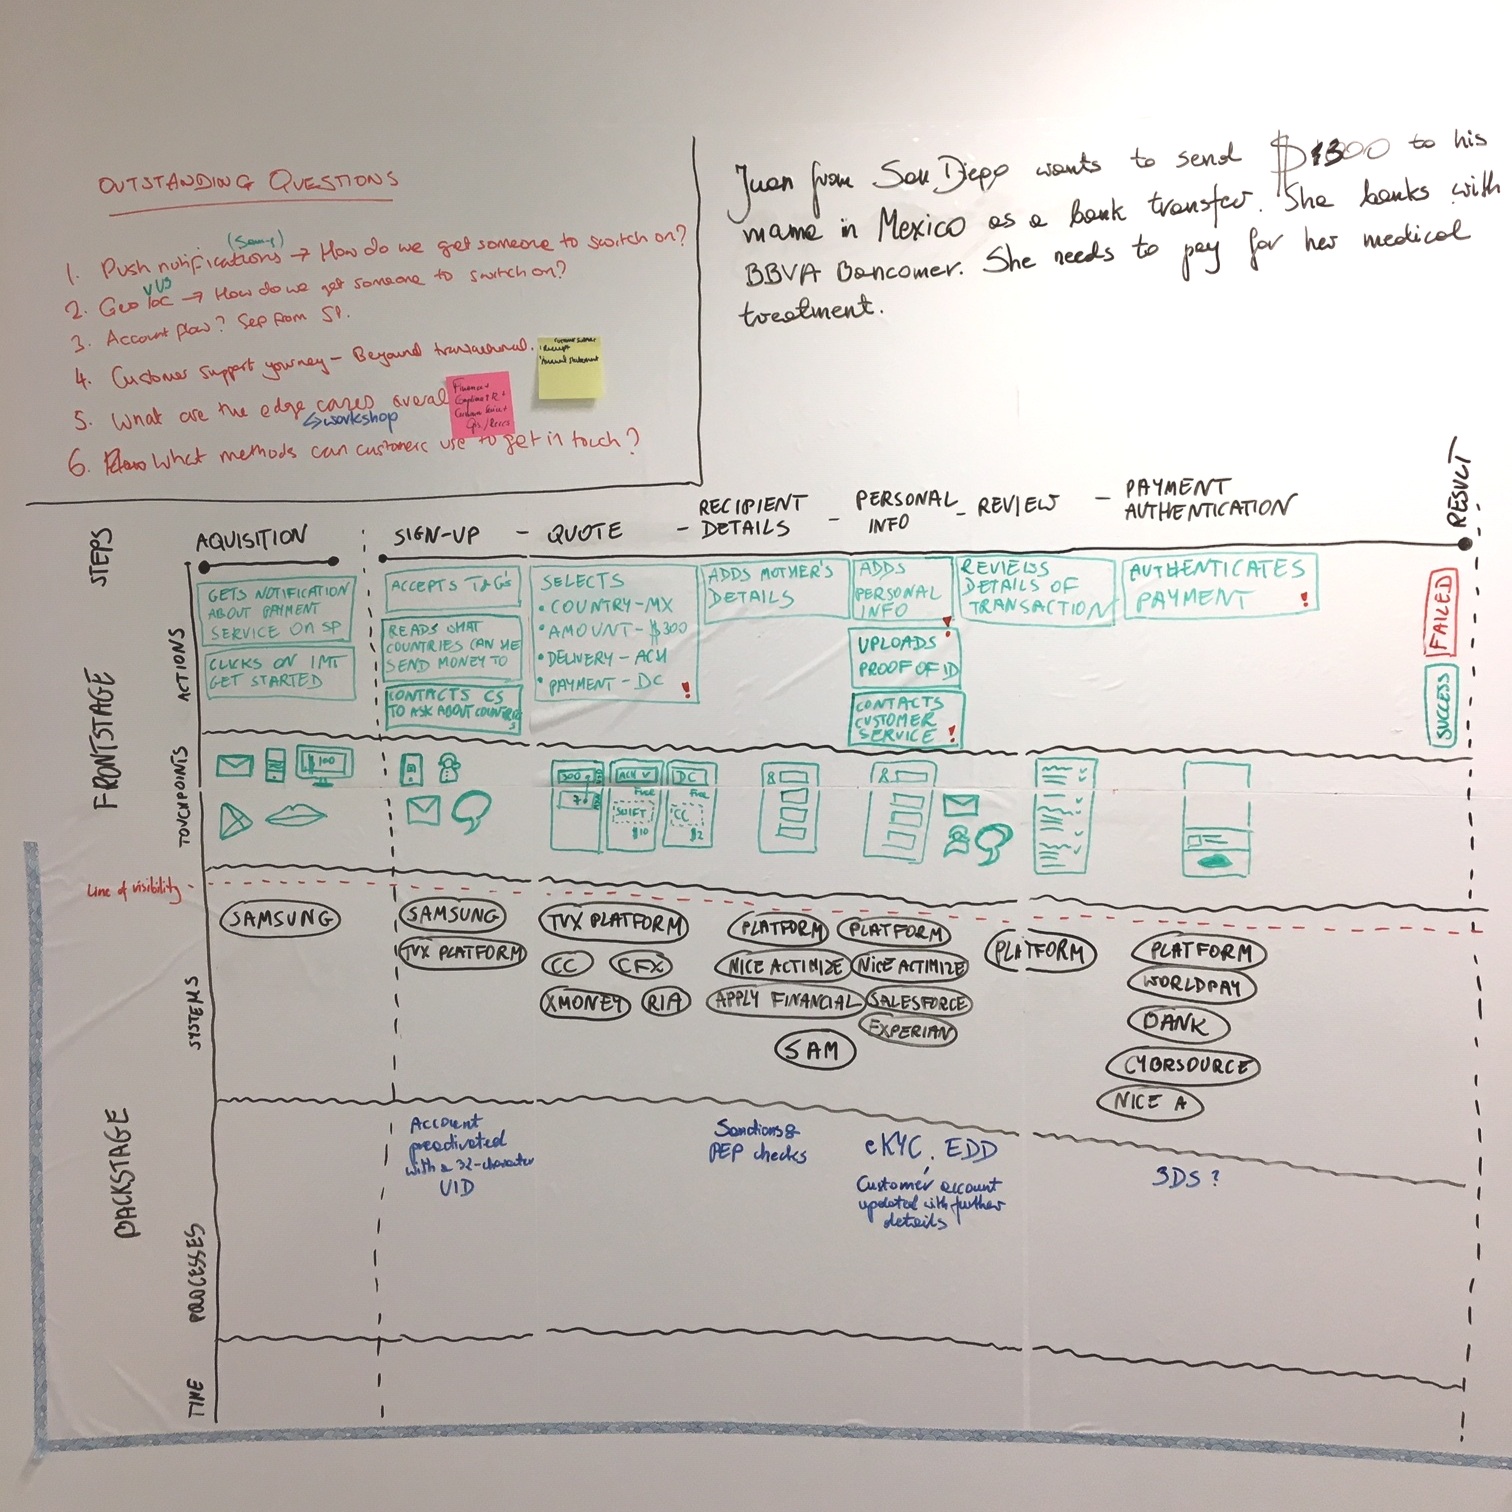 OUTSTANDING QUESTIONS
(Samsung)
1. Push notifications → How do we get someone to switch on?
VUS
2. Geo loc → How do we get someone to switch on?
3. Account flow? Sep from SP.
4. Customer support journey - Beyond transactional.
5. What are the edge cases overal
↳ workshop
6. What methods can customers use to get in touch?
Receipt
Annual statement
Finance +
Compliance +
Customer Service +
Juan from San Diego wants to send $300 to his
mama in Mexico as a bank transfer. She banks with
BBVA Bancomer. She needs to pay for her medical
treatment.
STEPS
AQUISITION
SIGN-UP - QUOTE - RECIPIENT DETAILS - PERSONAL INFO - REVIEW - PAYMENT AUTHENTICATION
RESULT
FRONTSTAGE
ACTIONS
GETS NOTIFICATION
ABOUT PAYMENT
SERVICE ON SP
CLICKS ON IMT
GET STARTED
ACCEPTS T&G's
READS WHAT
COUNTRIES CAN HE
SEND MONEY TO
CONTACTS CS
TO ASK ABOUT COUNTRIES
SELECTS
• COUNTRY - MX
• AMOUNT - $300
• DELIVERY - ACH
• PAYMENT - DC !
ADDS MOTHER'S
DETAILS
ADDS
PERSONAL
INFO !
UPLOADS
PROOF OF ID
CONTACTS
CUSTOMER
SERVICE !
REVIEWS
DETAILS OF
TRANSACTION
AUTHENTICATES
PAYMENT !
FAILED
SUCCESS
TOUCHPOINTS
$100
300
7
ACH
Free
SWIFT
$10
DC
Free
CC
$2
Line of visibility
BACKSTAGE
SYSTEMS
SAMSUNG
SAMSUNG
TVX PLATFORM
TVX PLATFORM
CC
CFX
XMONEY
RIA
PLATFORM
NICE ACTIMIZE
APPLY FINANCIAL
SAM
PLATFORM
NICE ACTIMIZE
SALESFORCE
EXPERIAN
PLATFORM
PLATFORM
WORLDPAY
BANK
CYBRSOURCE
NICE A
PROCESSES
Account
preactivated
with a 32-character
UID
Sanctions &
PEP checks
eKYC, EDD
Customer account
updated with further
details
3DS?
TIME